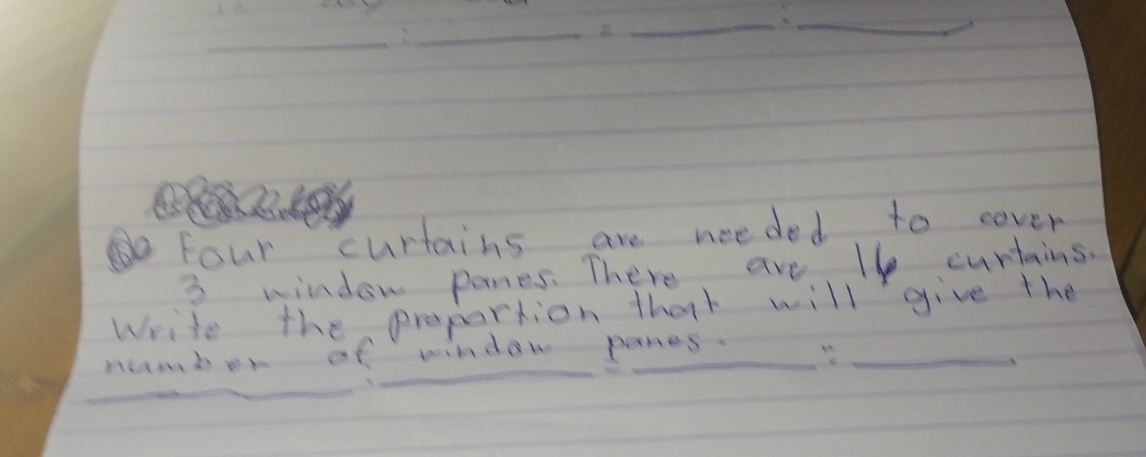 Four curtains are needed to cover
3 window panes. There are 16 curtains.
Write the proportion that will give the
number of window panes.
______ : ______ = ______ : ______